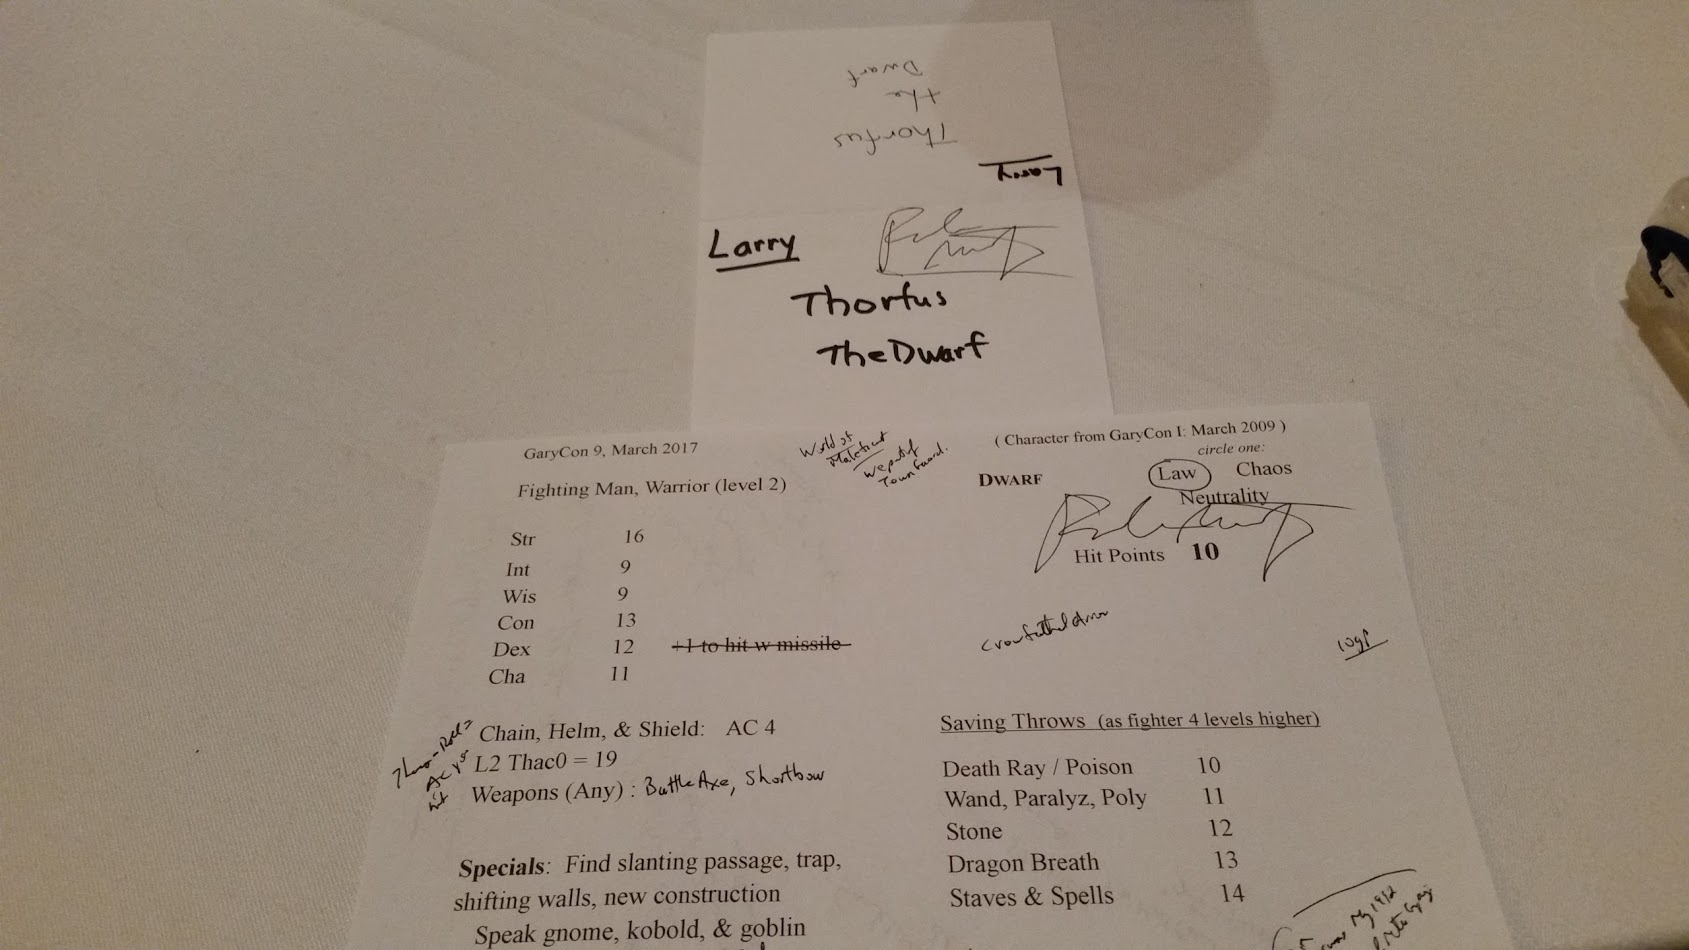 Thorfus
the
Dwarf
Larry
Larry
Thorfus
The Dwarf
GaryCon 9, March 2017
World of
We part of
Town Guard.
( Character from GaryCon I: March 2009 )
circle one:
Fighting Man, Warrior (level 2)
DWARF
Law Chaos
Neutrality
Hit Points 10
Str 16
Int 9
Wis 9
Con 13
Dex 12 +1 to hit w missile
Cha 11
10gp
Chain, Helm, & Shield: AC 4
L2 Thac0 = 19
Weapons (Any) : Battle Axe, Shortbow
Specials: Find slanting passage, trap,
shifting walls, new construction
Speak gnome, kobold, & goblin
Saving Throws (as fighter 4 levels higher)
Death Ray / Poison 10
Wand, Paralyz, Poly 11
Stone 12
Dragon Breath 13
Staves & Spells 14